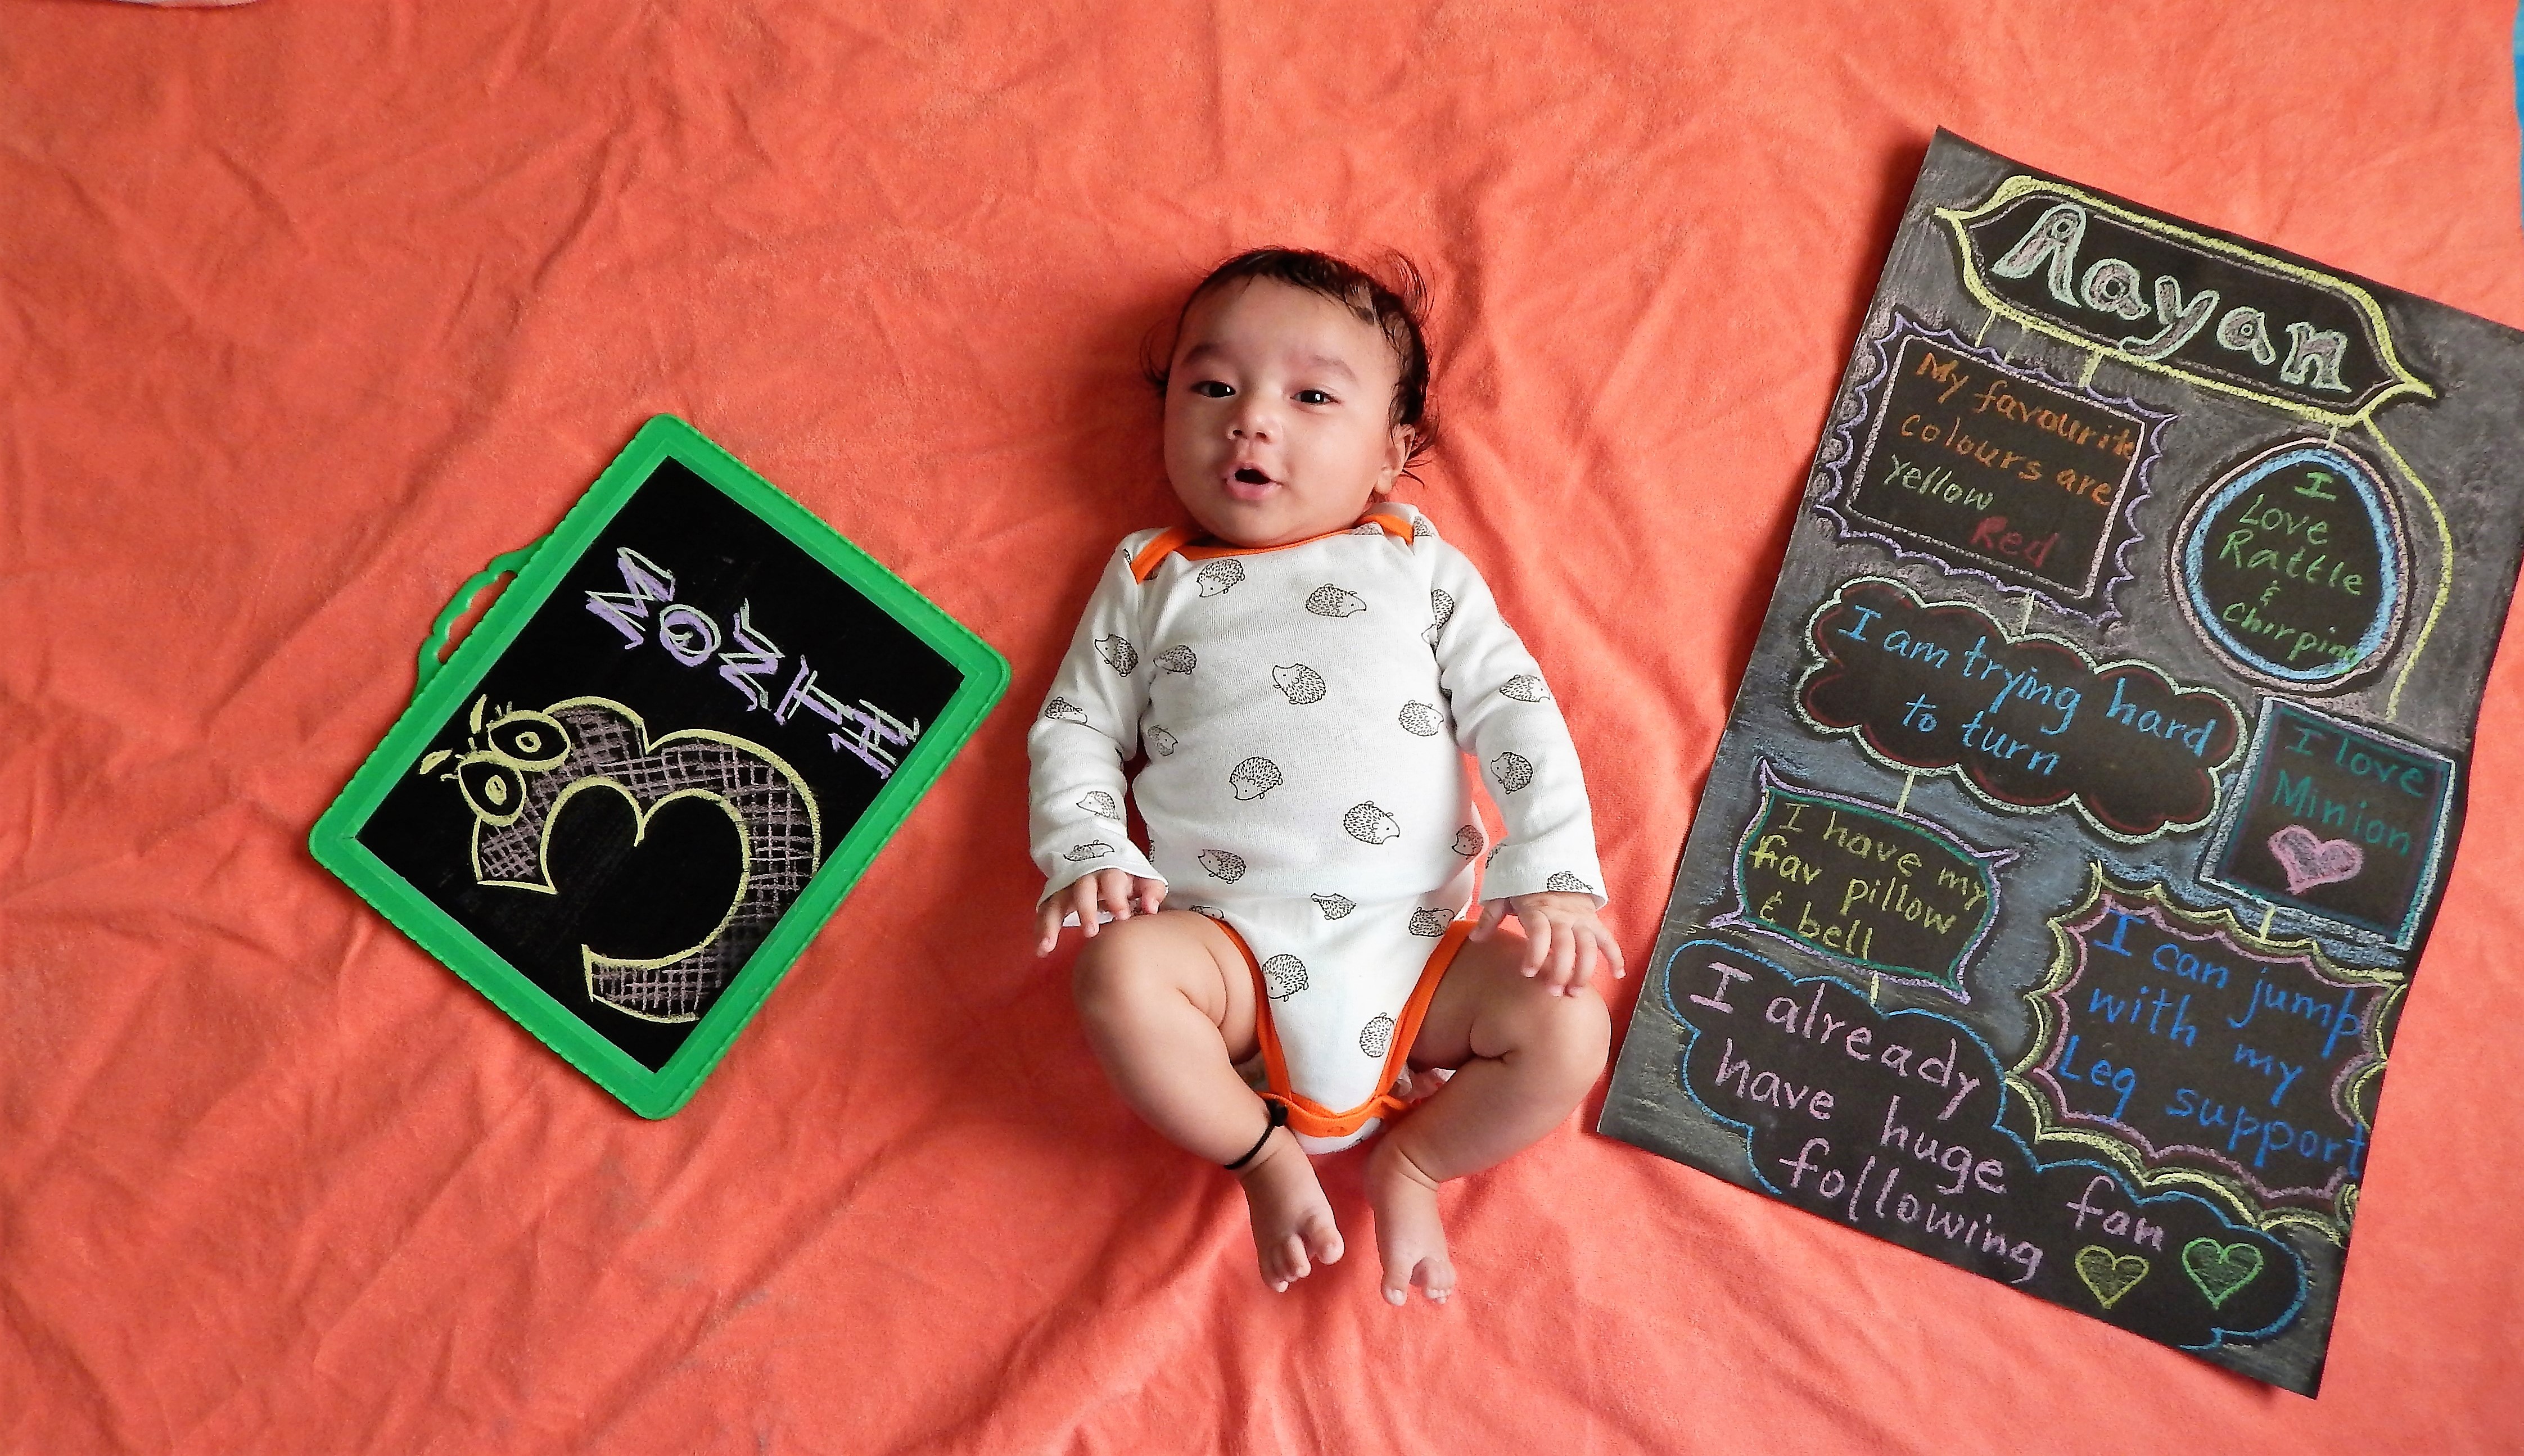 MONTH
3
Aayan
My favourite
colours are
yellow
Red
I
Love
Rattle
&
Chirping
I am trying hard
to turn
I love
Minion
I have my
fav pillow
& bell
I can jump
with my
Leg support
I already
have huge fan
following